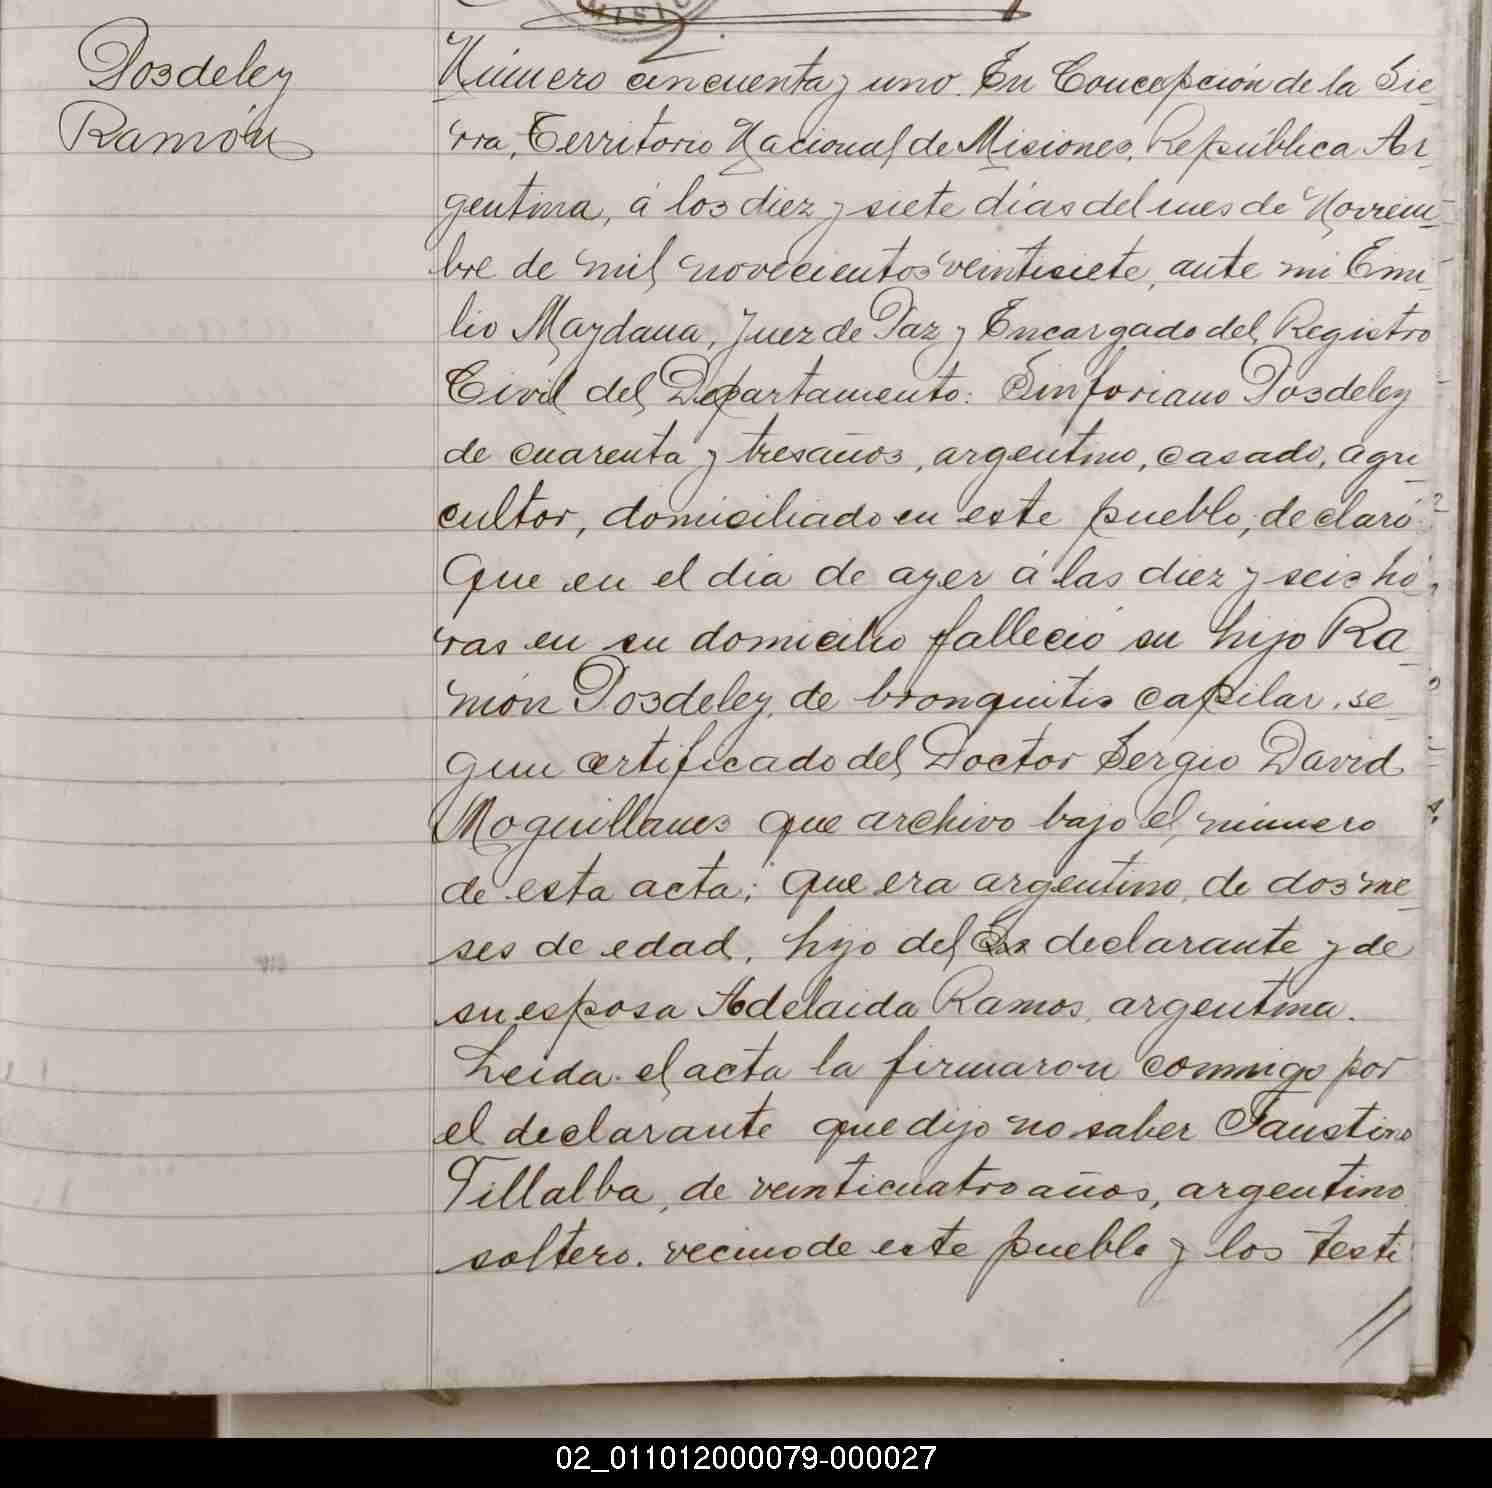 MISIO
Posdeley
Ramón
Número cincuenta y uno. En Concepción de la Sie-
rra, Territorio Nacional de Misiones, República Ar-
gentina, á los diez y siete días del mes de Noviem-
bre de mil novecientos veintisiete, ante mi Emi-
lio Maydana, Juez de Paz y Encargado del Registro
Civil del Departamento: Sinforiano Posdeley
de cuarenta y tres años, argentino, casado, agri-
cultor, domiciliado en este pueblo, declaró:
Que en el dia de ayer á las diez y seis ho-
ras en su domicilio falleció su hijo Ra-
món Posdeley, de bronquitis capilar, se-
gun certificado del Doctor Sergio David
Moguillanes que archivo bajo el número
de esta acta; que era argentino, de dos me-
ses de edad, hijo del declarante y de
su esposa Adelaida Ramos, argentina.
Leida el acta la firmaron conmigo por
el declarante que dijo no saber Faustino
Villalba, de veinticuatro años, argentino
soltero, vecino de este pueblo y los testi
//
02_011012000079-000027